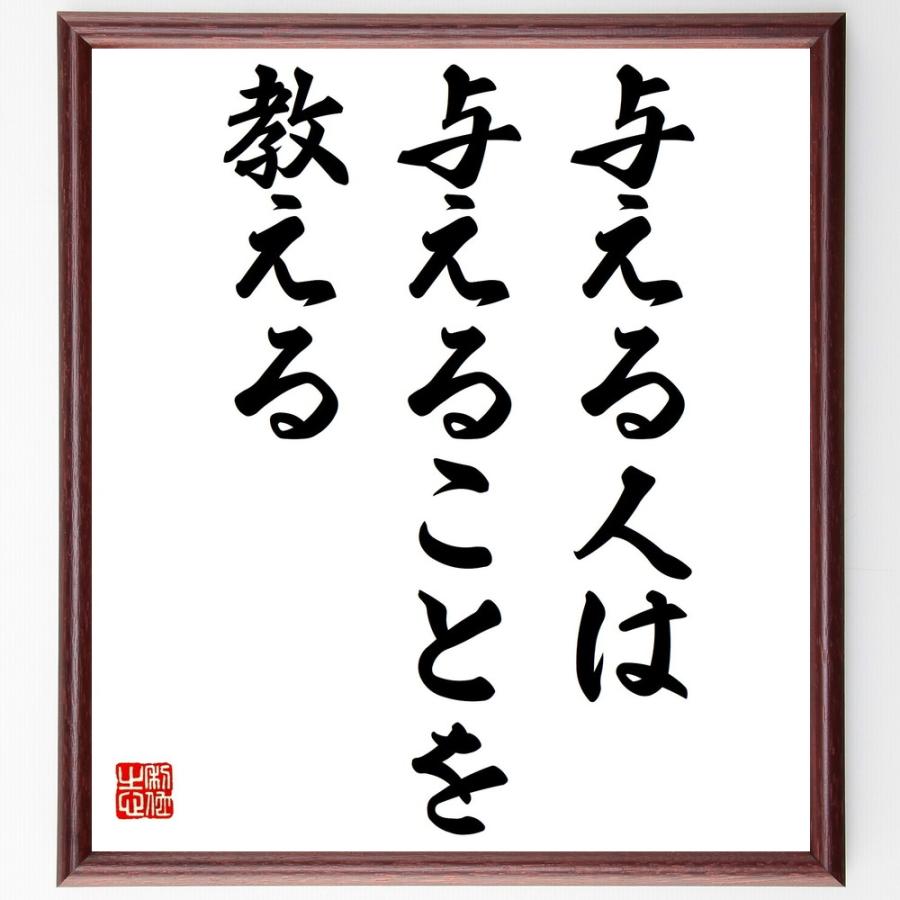 与える人は
与えることを
教える